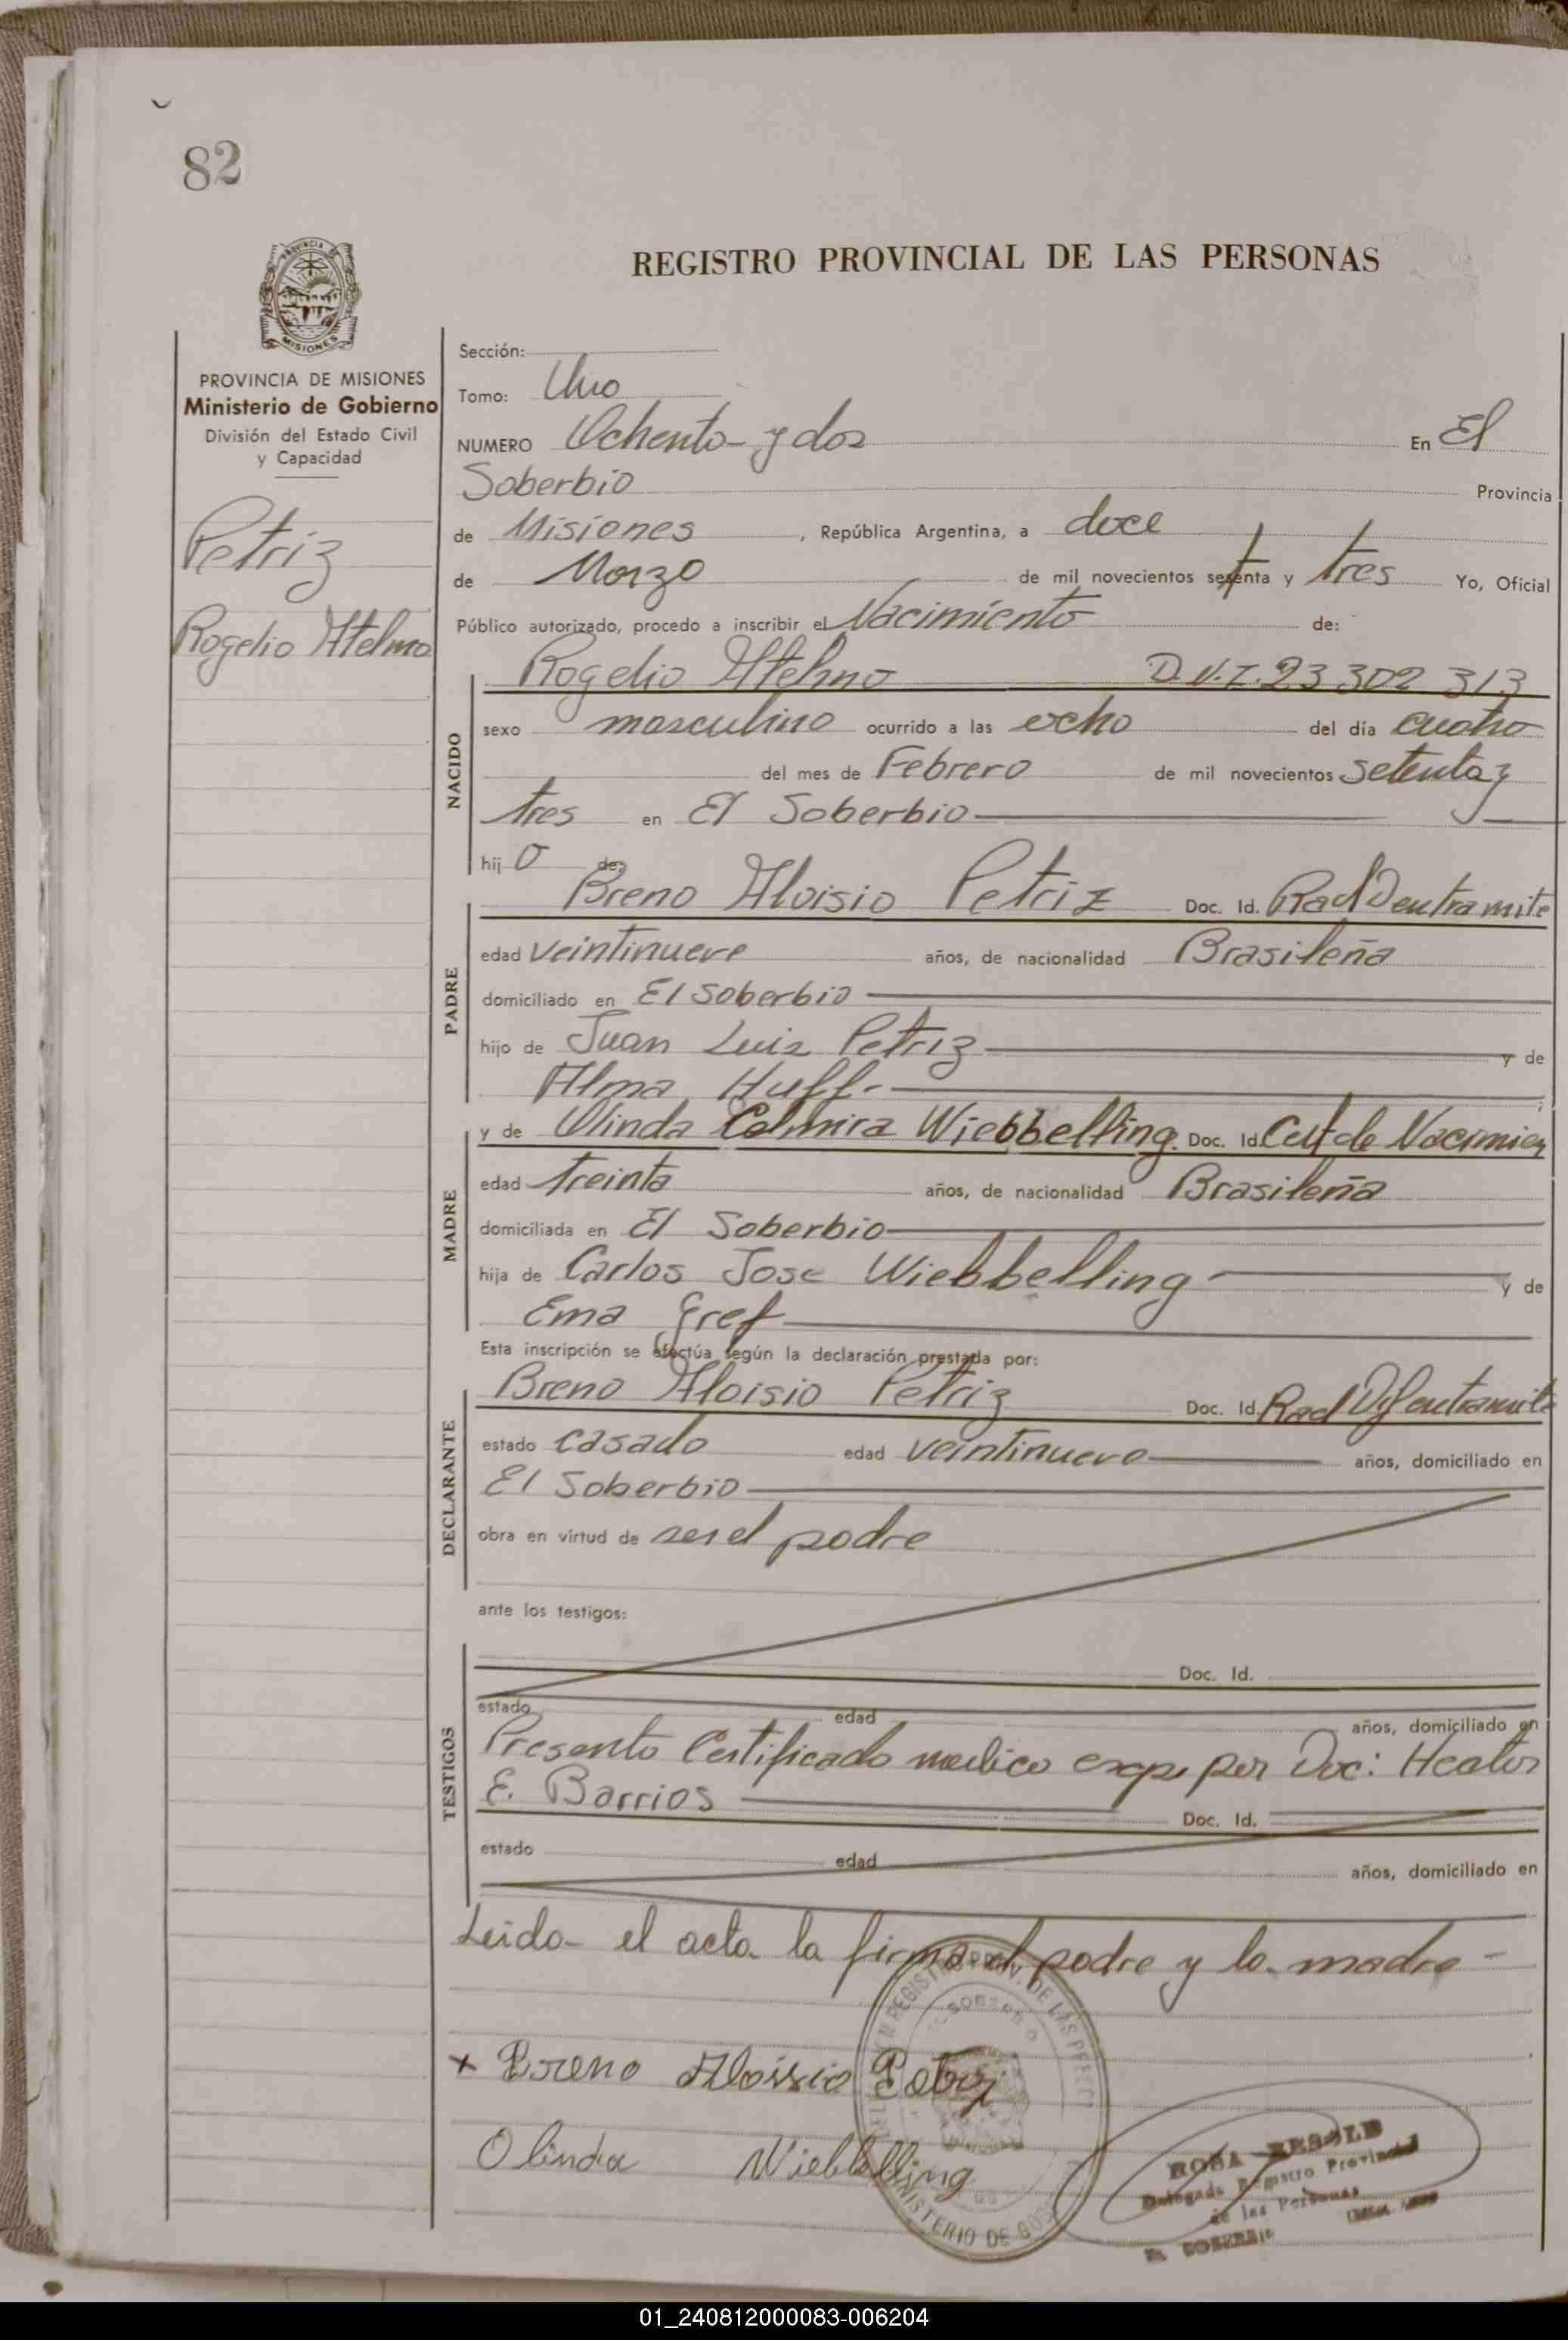 82
REGISTRO PROVINCIAL DE LAS PERSONAS
PROVINCIA DE
MISIONES
PROVINCIA DE MISIONES
Ministerio de Gobierno
División del Estado Civil
y Capacidad
Petriz
Rogelio Atelmo
Sección:
Tomo: Uno
NUMERO Ochenta y dos En El
Soberbio Provincia
de Misiones, República Argentina, a doce
de Marzo de mil novecientos setenta y tres Yo, Oficial
Público autorizado, procedo a inscribir el Nacimiento de:
NACIDO
Rogelio Atelmo D.N.I. 23 302 313
sexo masculino ocurrido a las ocho del día cuatro
del mes de Febrero de mil novecientos setenta y
tres en El Soberbio
hij o de:
PADRE
Breno Aloisio Petriz Doc. Id. Rad D entramite
edad veintinueve años, de nacionalidad Brasileña
domiciliado en El Soberbio
hijo de Juan Luiz Petriz y de
Alma Huff.-
MADRE
y de Olinda Celmira Wiebbelling Doc. Id. Cert de Nacimien
edad treinta años, de nacionalidad Brasileña
domiciliada en El Soberbio
hija de Carlos Jose Wiebbelling y de
Ema Gref
Esta inscripción se efectúa según la declaración prestada por:
DECLARANTE
Breno Aloisio Petriz Doc. Id. Rad entramite
estado casado edad veintinueve años, domiciliado en
El Soberbio
obra en virtud de ser el padre
ante los testigos:
TESTIGOS
Doc. Id.
estado edad años, domiciliado en
Presento Certificado medico exp. por Doc: Hector
E. Barrios Doc. Id.
estado edad años, domiciliado en
Leida el acta la firma el padre y la madre -
+ Breno Aloissio
Olinda Wiebbelling
MINISTERIO DE
ROSA
Delegada Registro Provincial
de las Personas
EL SOBERBIO
01_240812000083-006204